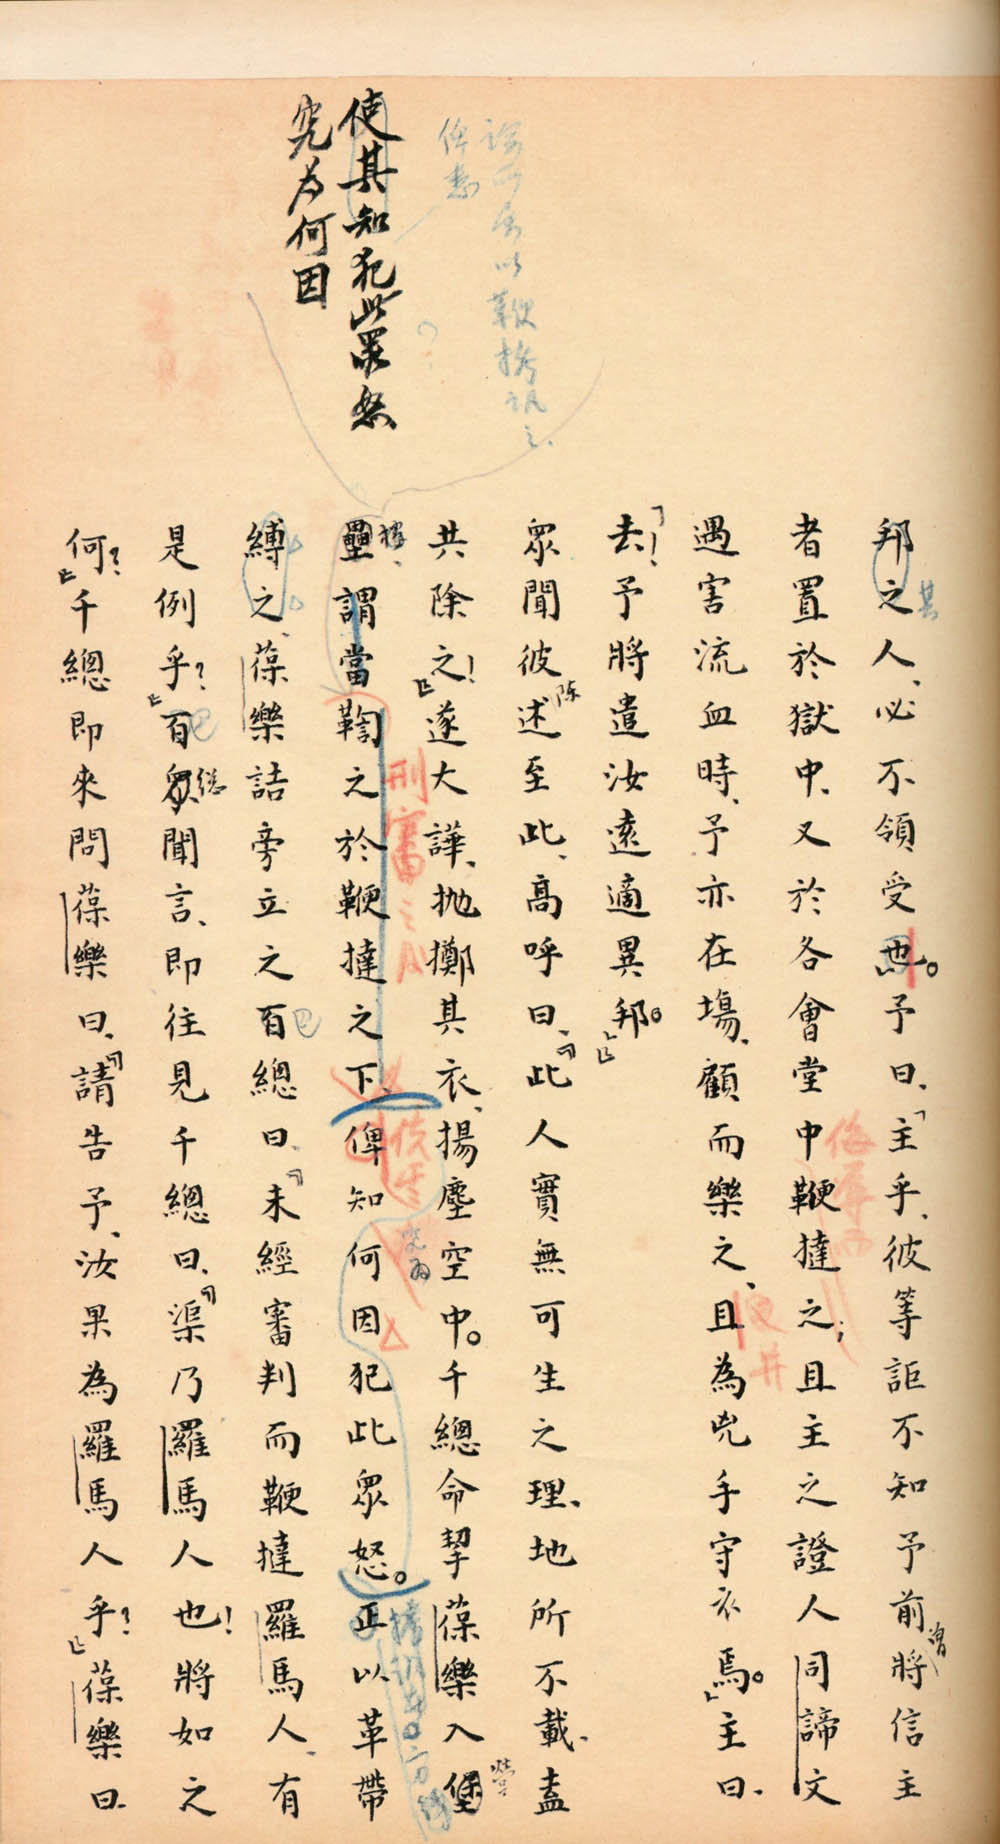 使其知犯此眾怒
究為何因
邦之人、必不領受也。予曰、「主乎、彼等詎不知予前將信主
者置於獄中、又於各會堂中鞭撻之；且主之證人同諦文
遇害流血時、予亦在場、顧而樂之、且為兇手守衣焉。」主曰、
「去！予將遣汝遠適異邦。」
眾聞彼述至此、高呼曰、「此人實無可生之理、地所不載、盍
共除之！」遂大譁、拋擲其衣、揚塵空中。千總命挈葆樂入堡
壘謂當鞫之於鞭撻之下、俾知何因犯此眾怒。正以革帶
縛之、葆樂詰旁立之百總曰、「未經審判而鞭撻羅馬人、有
是例乎？」百總聞言、即往見千總曰、「渠乃羅馬人也！將如之
何？」千總即來問葆樂曰、「請告予、汝果為羅馬人乎？」葆樂曰、
其
曾
陳
刑審之
究為